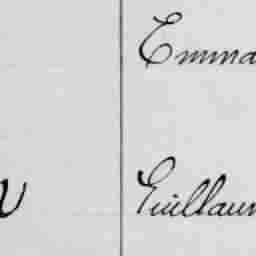 Emma
Guillau